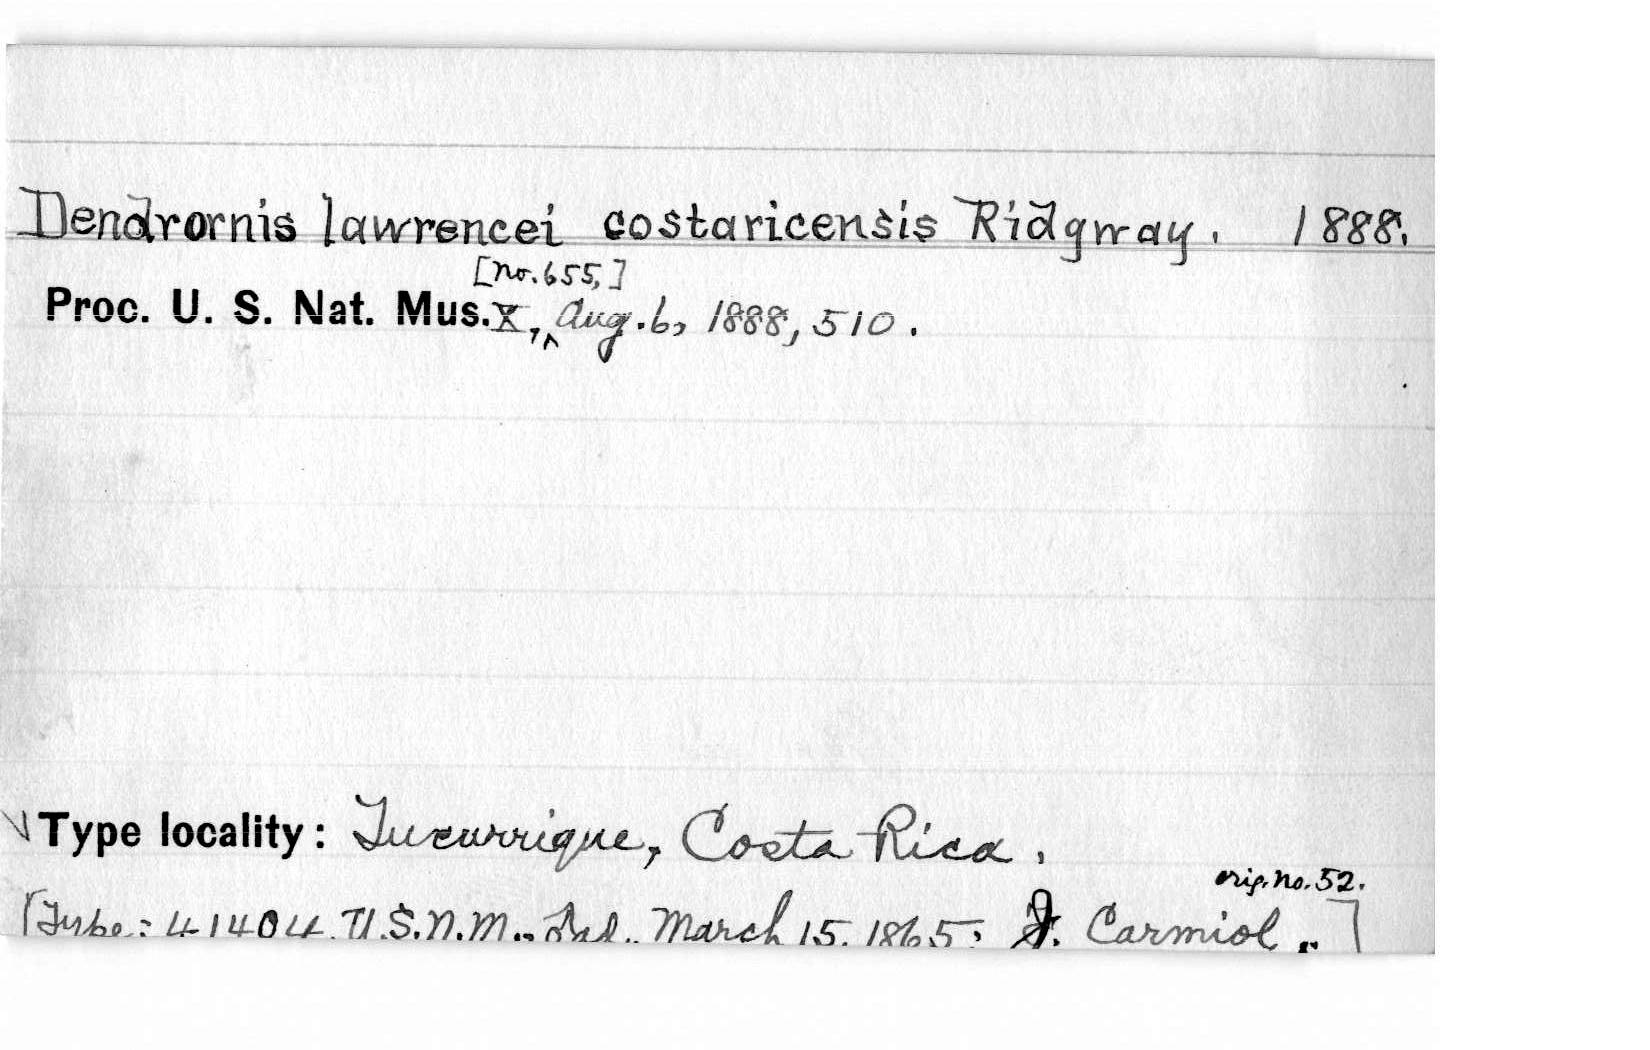 Dendrornis lawrencei costaricensis Ridgway. 1888.
[no. 655,]
Proc. U. S. Nat. Mus. X, Aug. 6, 1888, 510.
Type locality: Tucurrique, Costa Rica.
orig. no. 52.
[Type: 41404 U.S.N.M., Ad., March 15, 1865; J. Carmiol.]